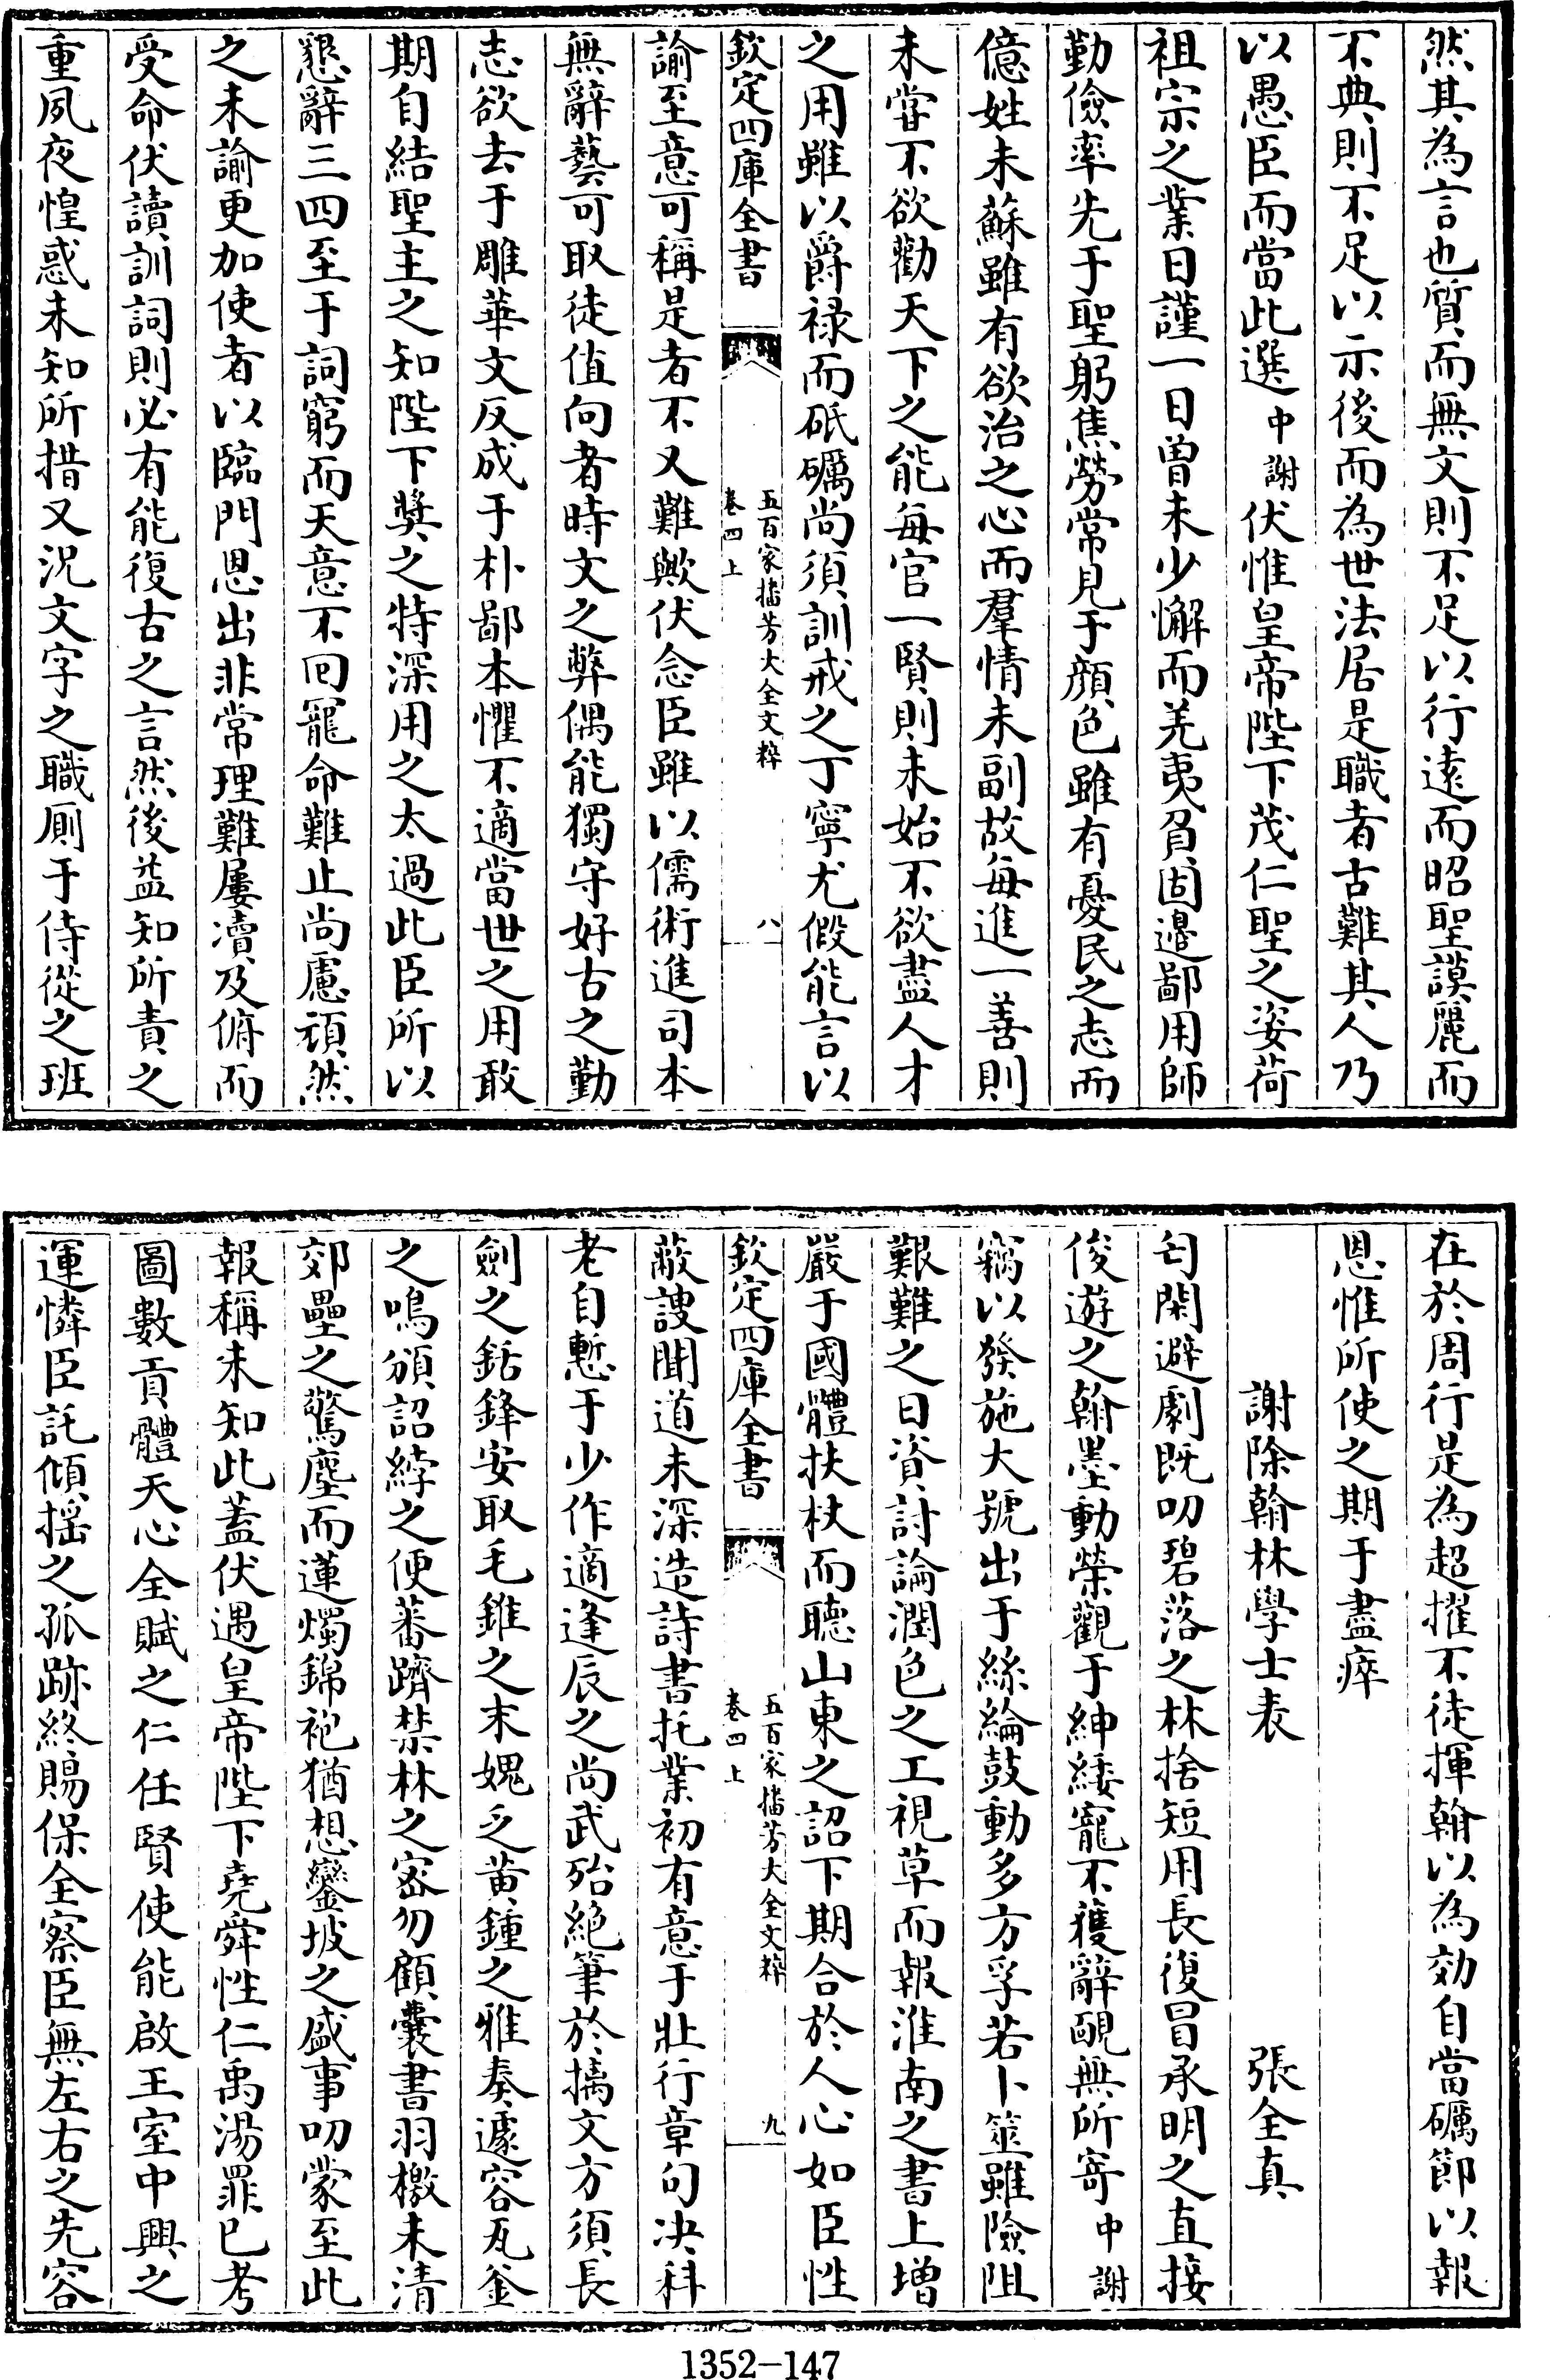 然其為言也質而無文則不足以行遠而昭聖謨麗而
不典則不足以示後而為世法居是職者古難其人乃
以愚臣而當此選中謝伏惟皇帝陛下茂仁聖之姿荷
祖宗之業日謹一日曽未少懈而羌夷負固邉鄙用師
勤儉率先于聖躬焦勞常見于顔色雖有憂民之志而
億姓未蘇雖有欲治之心而羣情未副故每進一善則
未甞不欲勸天下之能每官一賢則未始不欲盡人才
之用雖以爵禄而砥礪尚須訓戒之丁寧尤假能言以
欽定四庫全書
五百家播芳大全文粹
卷四上
八
諭至意可稱是者不又難歟伏念臣雖以儒術進司本
無辭藝可取徒值向者時文之弊偶能獨守好古之勤
志欲去于雕華文反成于朴鄙本懼不適當世之用敢
期自結聖主之知陛下奬之特深用之太過此臣所以
懇辭三四至于詞窮而天意不回寵命難止尚慮頑然
之未諭更加使者以臨門恩出非常理難屢凟及俯而
受命伏讀訓詞則必有能復古之言然後益知所責之
重夙夜惶惑未知所措又況文字之職厠于侍從之班
在於周行是為超擢不徒揮翰以為効自當礪節以報
恩惟所使之期于盡瘁
謝除翰林學士表
張全真
匄閑避劇既叨碧落之林捨短用長復冒承明之直接
俊遊之翰墨動榮觀于紳緌寵不獲辭靦無所寄中謝
竊以發施大號出于絲綸鼓動多方孚若卜筮雖險阻
艱難之日資討論潤色之工視草而報淮南之書上增
嚴于國體扶杖而聽山東之詔下期合於人心如臣性
欽定四庫全書
五百家播芳大全文粹
卷四上
九
蔽謏聞道未深造詩書托業初有意于壯行章句决科
老自慙于少作適逢辰之尚武殆絶筆於摛文方須長
劍之銛鋒安取毛錐之末媿乏黄鐘之雅奏遽容瓦釜
之鳴頒詔綍之便蕃躋禁林之宻勿顧囊書羽檄未清
郊壘之驚塵而蓮燭錦袍猶想鑾坡之盛事叨蒙至此
報稱未知此葢伏遇皇帝陛下堯舜性仁禹湯罪巳考
圖數貢體天心全賦之仁任賢使能啟王室中興之
運憐臣託傾揺之孤跡終賜保全察臣無左右之先容
1352-147